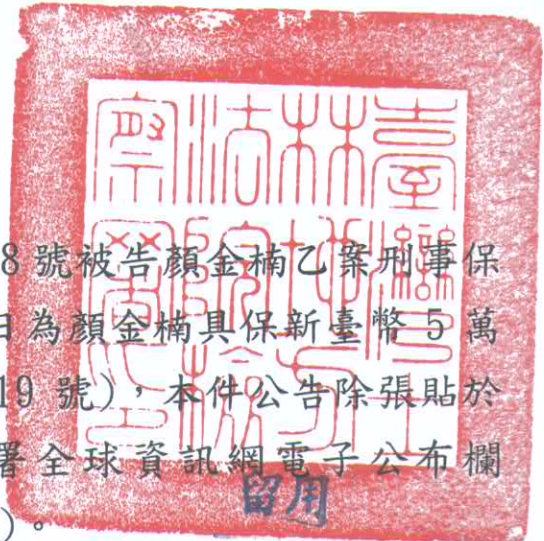 臺灣士
林地方
法院檢
察署印
8號被告顏金楠乙案刑事保
日為顏金楠具保新臺幣5萬
19號），本件公告除張貼於
署全球資訊網電子公布欄
）。
留用